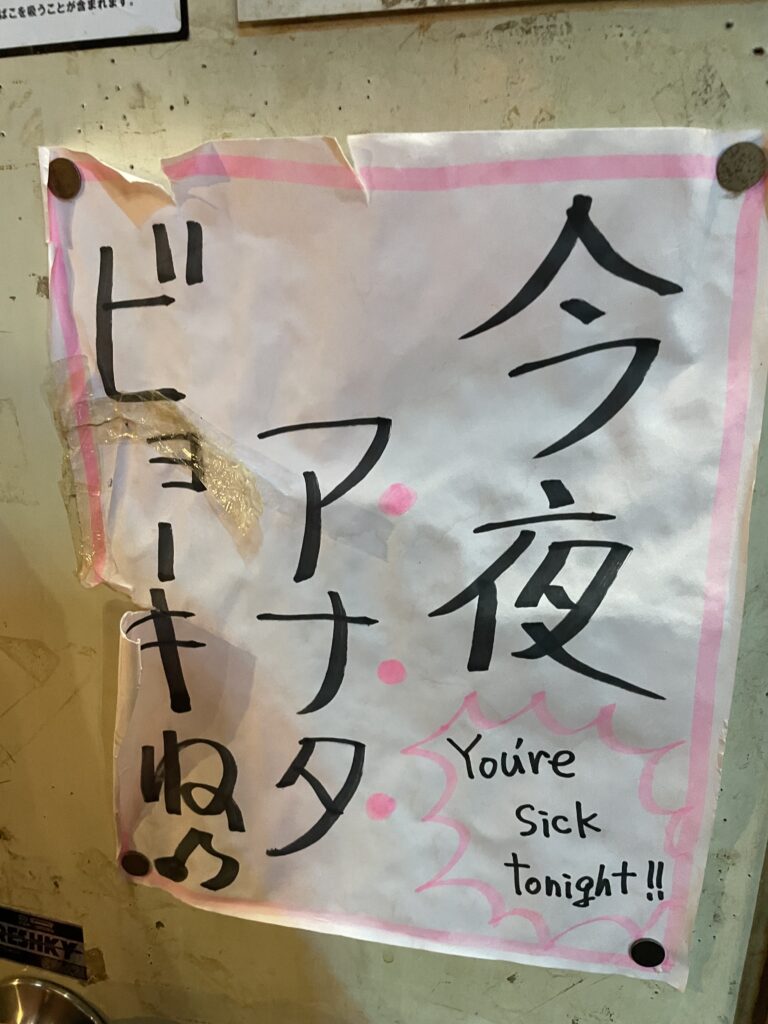 ばこを吸うことが含まれます。
今夜
アナタ
ビョーキね♪
You're
sick
tonight!!
RESHKY